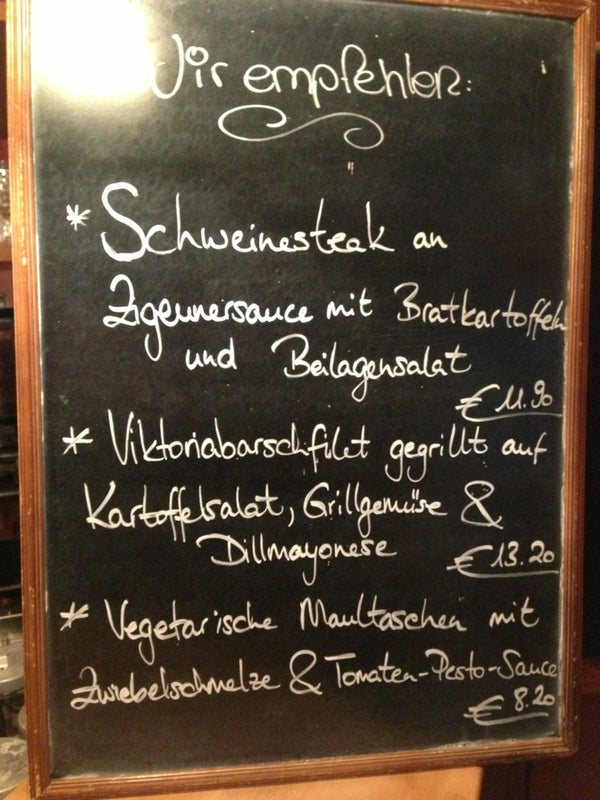 Wir empfehlen:
* Schweinesteak an
Zigeunersauce mit Bratkartoffeln
und Beilagensalat
€ 11.90
* Viktoriabarschfilet gegrillt auf
Kartoffelsalat, Grillgemüse &
Dillmayonese
€ 13.20
* Vegetarische Maultaschen mit
Zwiebelschmelze & Tomaten-Pesto-Sauce
€ 8.20